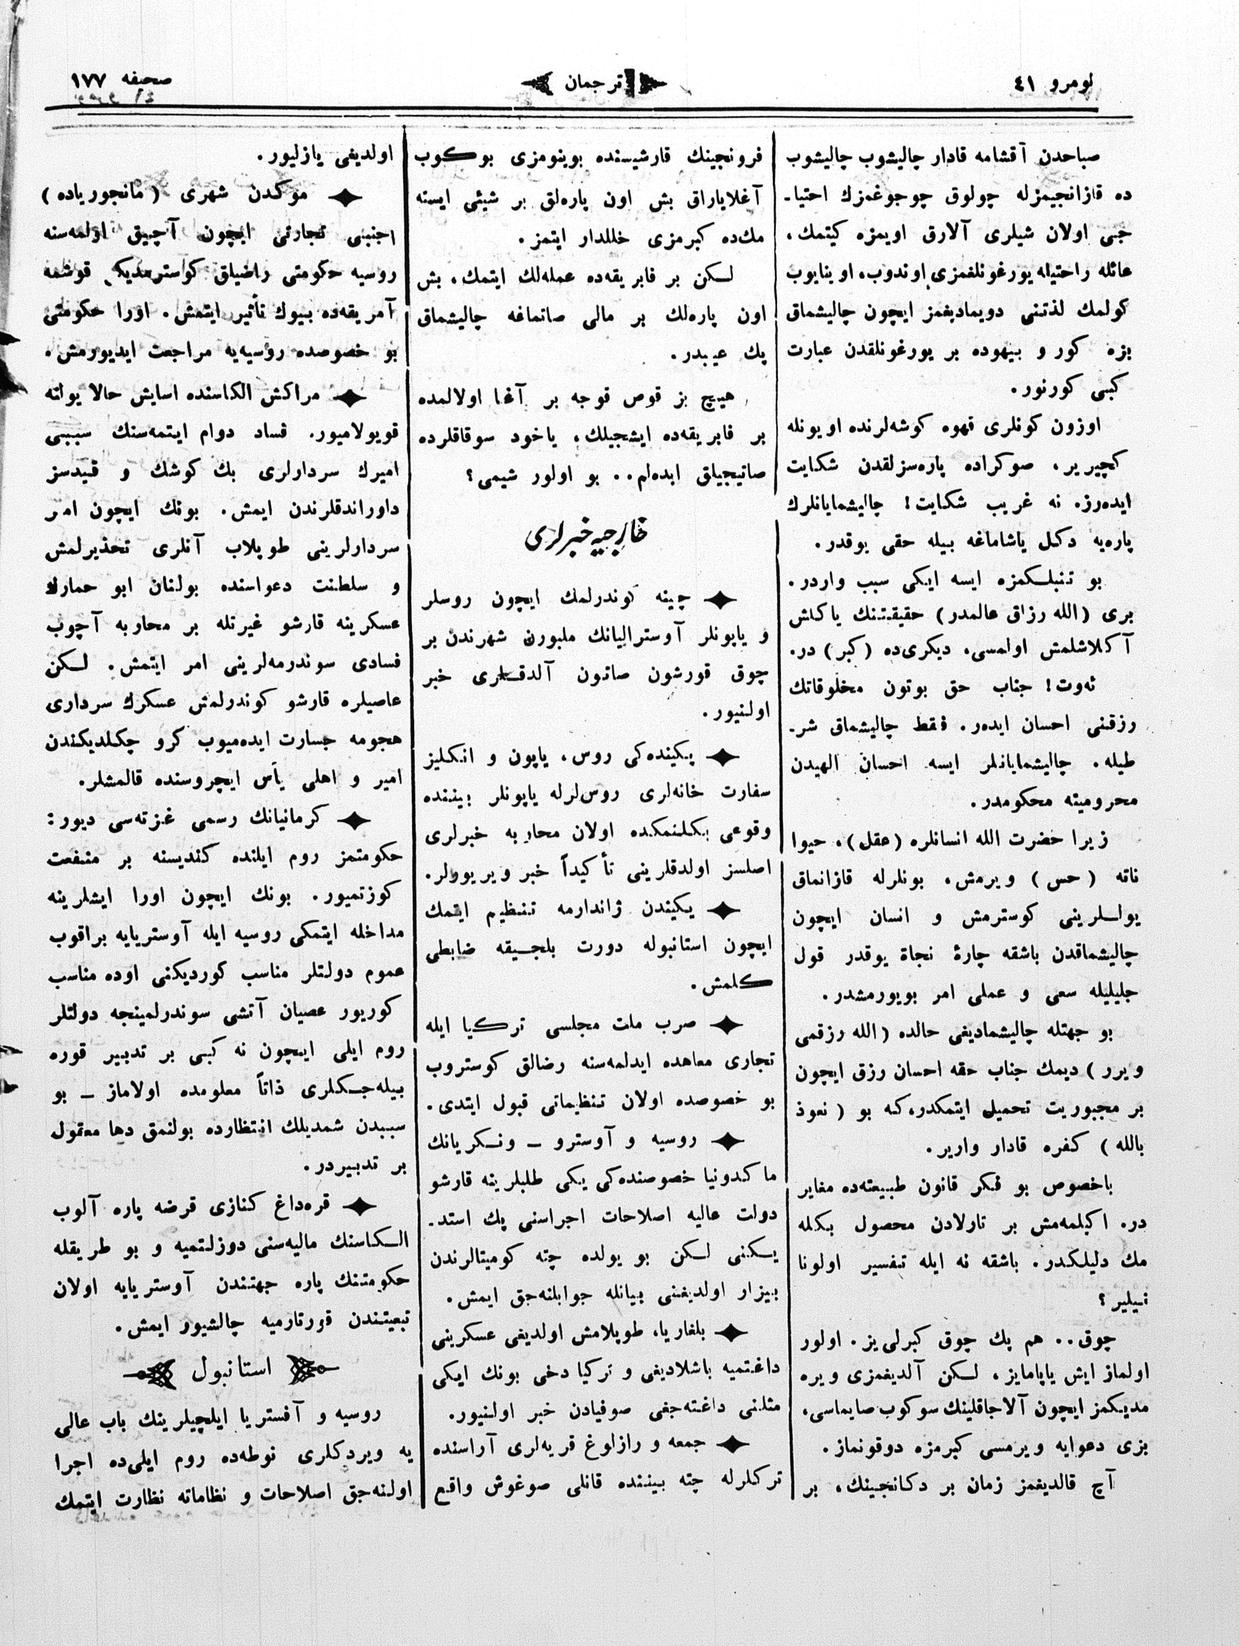 نومرو ٤١
ترجمان
صحيفه ١٧٧
صباحدن آقشامه قادار چاليشوب چاليشوب
ده قازانجيمزله چولوق چوجوغمزك احتيا۔
جی اولان شيلری آلارق اويمزه كيتمك،
عائله راحتيله يورغونلغمزی اوندوب، اوينايوب
كولمك لذتنی دويماديغمز ايچون چاليشماق
بزه كور و بيهوده بر يورغونلقدن عبارت
كبی كورنور.
اوزون كونلری قهوه كوشه‌لرنده اويونله
كچيرير، صوكراده پاره‌سزلقدن شكايت
ايده‌رز. نه غريب شكايت! چاليشمايانلرك
پاره‌يه دكل ياشاماغه بيله حقی يوقدر.
بو تنبلكمزه ايسه ايكی سبب واردر.
بری (الله رزاق عالمدر) حقيقتنك ياكلش
آكلاشلمش اولمسی، ديكری‌ده (كبر) در.
ئه‌وت! جناب حق بوتون مخلوقاتك
رزقنی احسان ايده‌ر. فقط چاليشماق شر۔
طيله. چاليشمايانلر ايسه احسان الهيدن
محروميته محكومدر.
زيرا حضرت الله انسانلره (عقل)، حيوا
ناته (حس) ويرمش، بونلرله قازانماق
يوللرينی كوسترمش و انسان ايچون
چاليشماقدن باشقه چارۀ نجاة يوقدر قول
جليليله سعی و عملی امر بويورمشدر.
بو جهتله چاليشماديغی حالده (الله رزقمی
ويرر) ديمك جناب حقه احسان رزق ايچون
بر مجبوريت تحميل ايتمكدر، كه بو (نعوذ
بالله) كفره قادار وارير.
باخصوص بو فكر قانون طبيعته‌ده مغاير
در. اكيلمه‌مش بر تارلادن محصول بكله
مك دليلكدر. باشقه نه ايله تفسير اولونا
بيلير؟
چوق.. هم پك چوق كبرلی‌يز. اولور
اولماز ايش ياپامايز، لكن آلديغمزی ويره
مديكمز ايچون آلاجاقلينك سوكوب صايماسی،
بزی دعوايه ويرمسی كبرمزه دوقونماز.
آچ قالديغمز زمان بر دكانجينك، بر
فرونجينك قارشيسنده بوينومزی بوكوب
آغلاياراق بش اون پاره‌لق بر شيئی ايسته
مك‌ده كبرمزی خللدار ايتمز.
لكن بر فابريقه‌ده عمله‌لك ايتمك، بش
اون پاره‌لك بر مالی صاتماغه چاليشماق
پك عيبدر.
هيچ بز قوص قوجه بر آغا اولالمده
بر فابريقه‌ده ايشجيلك، ياخود سوقاقلرده
صاتيجيلق ايده‌لم.. بو اولور شيمی؟
خارجيه خبرلری
چينه كوندرلمك ايچون روسلر
و ياپونلر آوستراليانك ملبورن شهرندن بر
چوق قورشون صاتون آلدقلری خبر
اولنيور.
پكينده‌كی روس، ياپون و انكليز
سفارت خانه‌لری روس‌لرله ياپونلر بيننده
وقوعی بكلنمكده اولان محاربه خبرلری
اصلسز اولدقلرينی تأكيداً خبر ويريوولر.
يكيندن ژاندارمه تنظيم ايتمك
ايچون استانبوله دورت بلجيقه ضابطی
كلمش.
صرب ملت مجلسی تركيا ايله
تجاری معاهده ايدلمه‌سنه رضالق كوستروب
بو خصوصده اولان تنظيماتی قبول ايتدی.
روسيه و آوسترو ــ ونكريانك
ماكدونيا خصوصنده‌كی يكی طلبلرينه قارشو
دولت عاليه اصلاحات اجراسنی پك استد۔
يكنی لكن بو يولده چته كوميتالرندن
بيزار اولديغنی بيانله جوابلنه‌جق ايمش.
بلغاريا، طوپلامش اولديغی عسكرينی
داغتميه باشلاديغی و تركيا دخی بونك ايكی
مثلنی داغته‌جغی صوفيادن خبر اولنيور.
جمعه و رازلوغ قريه‌لری آراسنده
تركلرله چته بيننده قانلی صوغوش واقع
اولديغی يازليور.
موكدن شهری (مانجورياده)
اجنبی تجارتی ايچون آچيق اولمه‌سنه
روسيه حكومتی راضيلق كوسترمديكی قوشمه
آمريقه‌ده بيوك تأثير ايتمش. اورا حكومتی
بو خصوصده روسيه‌يه مراجعت ايديورمش.
مراكش الكاسنده اسايش حالا يولنه
قويولاميور. فساد دوام ايتمه‌سنك سببی
اميرك سردارلری بك كوشك و قيدسز
داوراندقلرندن ايمش. بونك ايچون امر
سردارلرينی طوپلاب آنلری تحذيرلمش
و سلطنت دعواسنده بولنان ابو حمارك
عسكرينه قارشو غيرتله بر محاربه آچوب
فسادی سوندرمه‌لرينی امر ايتمش. لكن
عاصيلره قارشو كوندرلمش عسكرك سرداری
هجومه جسارت ايده‌ميوب كرو چكلديكندن
امير و اهلی يأس ايچروسنده قالمشلر.
كرمانيانك رسمی غزته‌سی ديور:
حكومتمز روم ايلنده كنديسنه بر منفعت
كوزتميور. بونك ايچون اورا ايشلرينه
مداخله ايتمكی روسيه ايله آوستريايه براقوب
عموم دولتلر مناسب كورديكنی اوده مناسب
كوريور عصيان آتشی سوندرلمينجه دولتلر
روم ايلی ايچون نه كبی بر تدبير قوره
بيله‌جكلری ذاتاً معلومده اولاماز ــ بو
سببدن شمديلك انتظارده بولنمق دها معقول
بر تدبيردر.
قره‌داغ كنازی قرضه پاره آلوب
الكاسنك ماليه‌سنی دوزلتميه و بو طريقله
حكومتنك پاره جهتندن آوسترياية اولان
تبعيتندن قورتارميه چالشيور ايمش.
استانبول
روسيه و آفستريا ايلچيلرينك باب عالی
يه ويردكلری نوطه‌ده روم ايلی‌ده اجرا
اولنه‌جق اصلاحات و نظاماته نظارت ايتمك